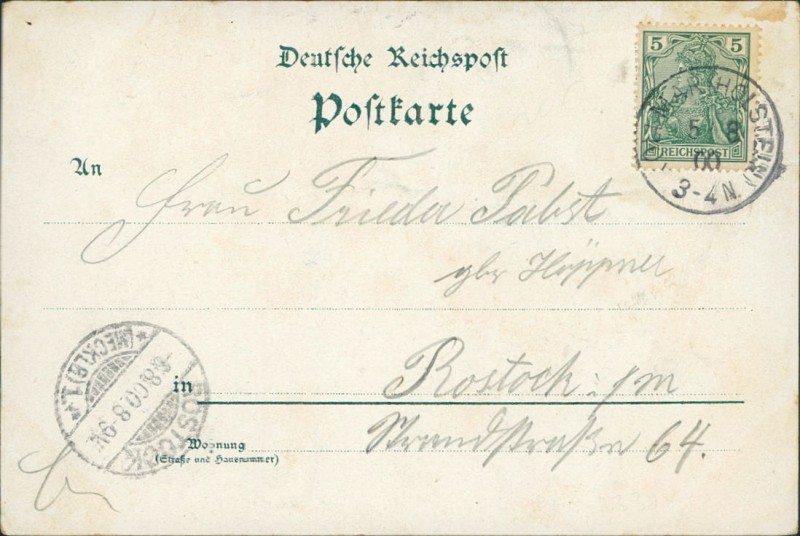 Deutsche Reichspost
Postkarte
5 5
REICHSPOST
(HOLSTEIN)
5 8
00
3-4N.
An
Frau Frieda Pabst
gbr Höppner
in Rostock i/m
Strandstraße 64.
Wohnung
(Straße und Hausnummer)
ROSTOCK
(MECKLB) 1.
8 00 8-9N